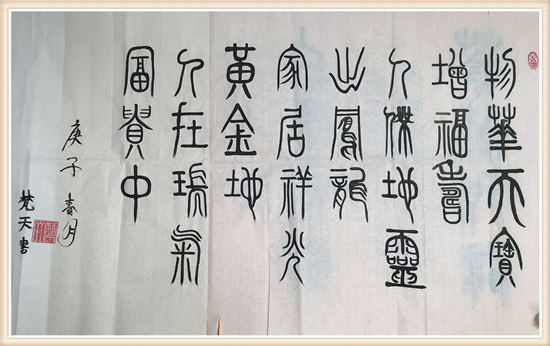 物華天寶
增福壽
人傑地靈
出鳳龍
家居祥光
黃金地
人在瑞氣
富貴中
庚子春月
梵天書